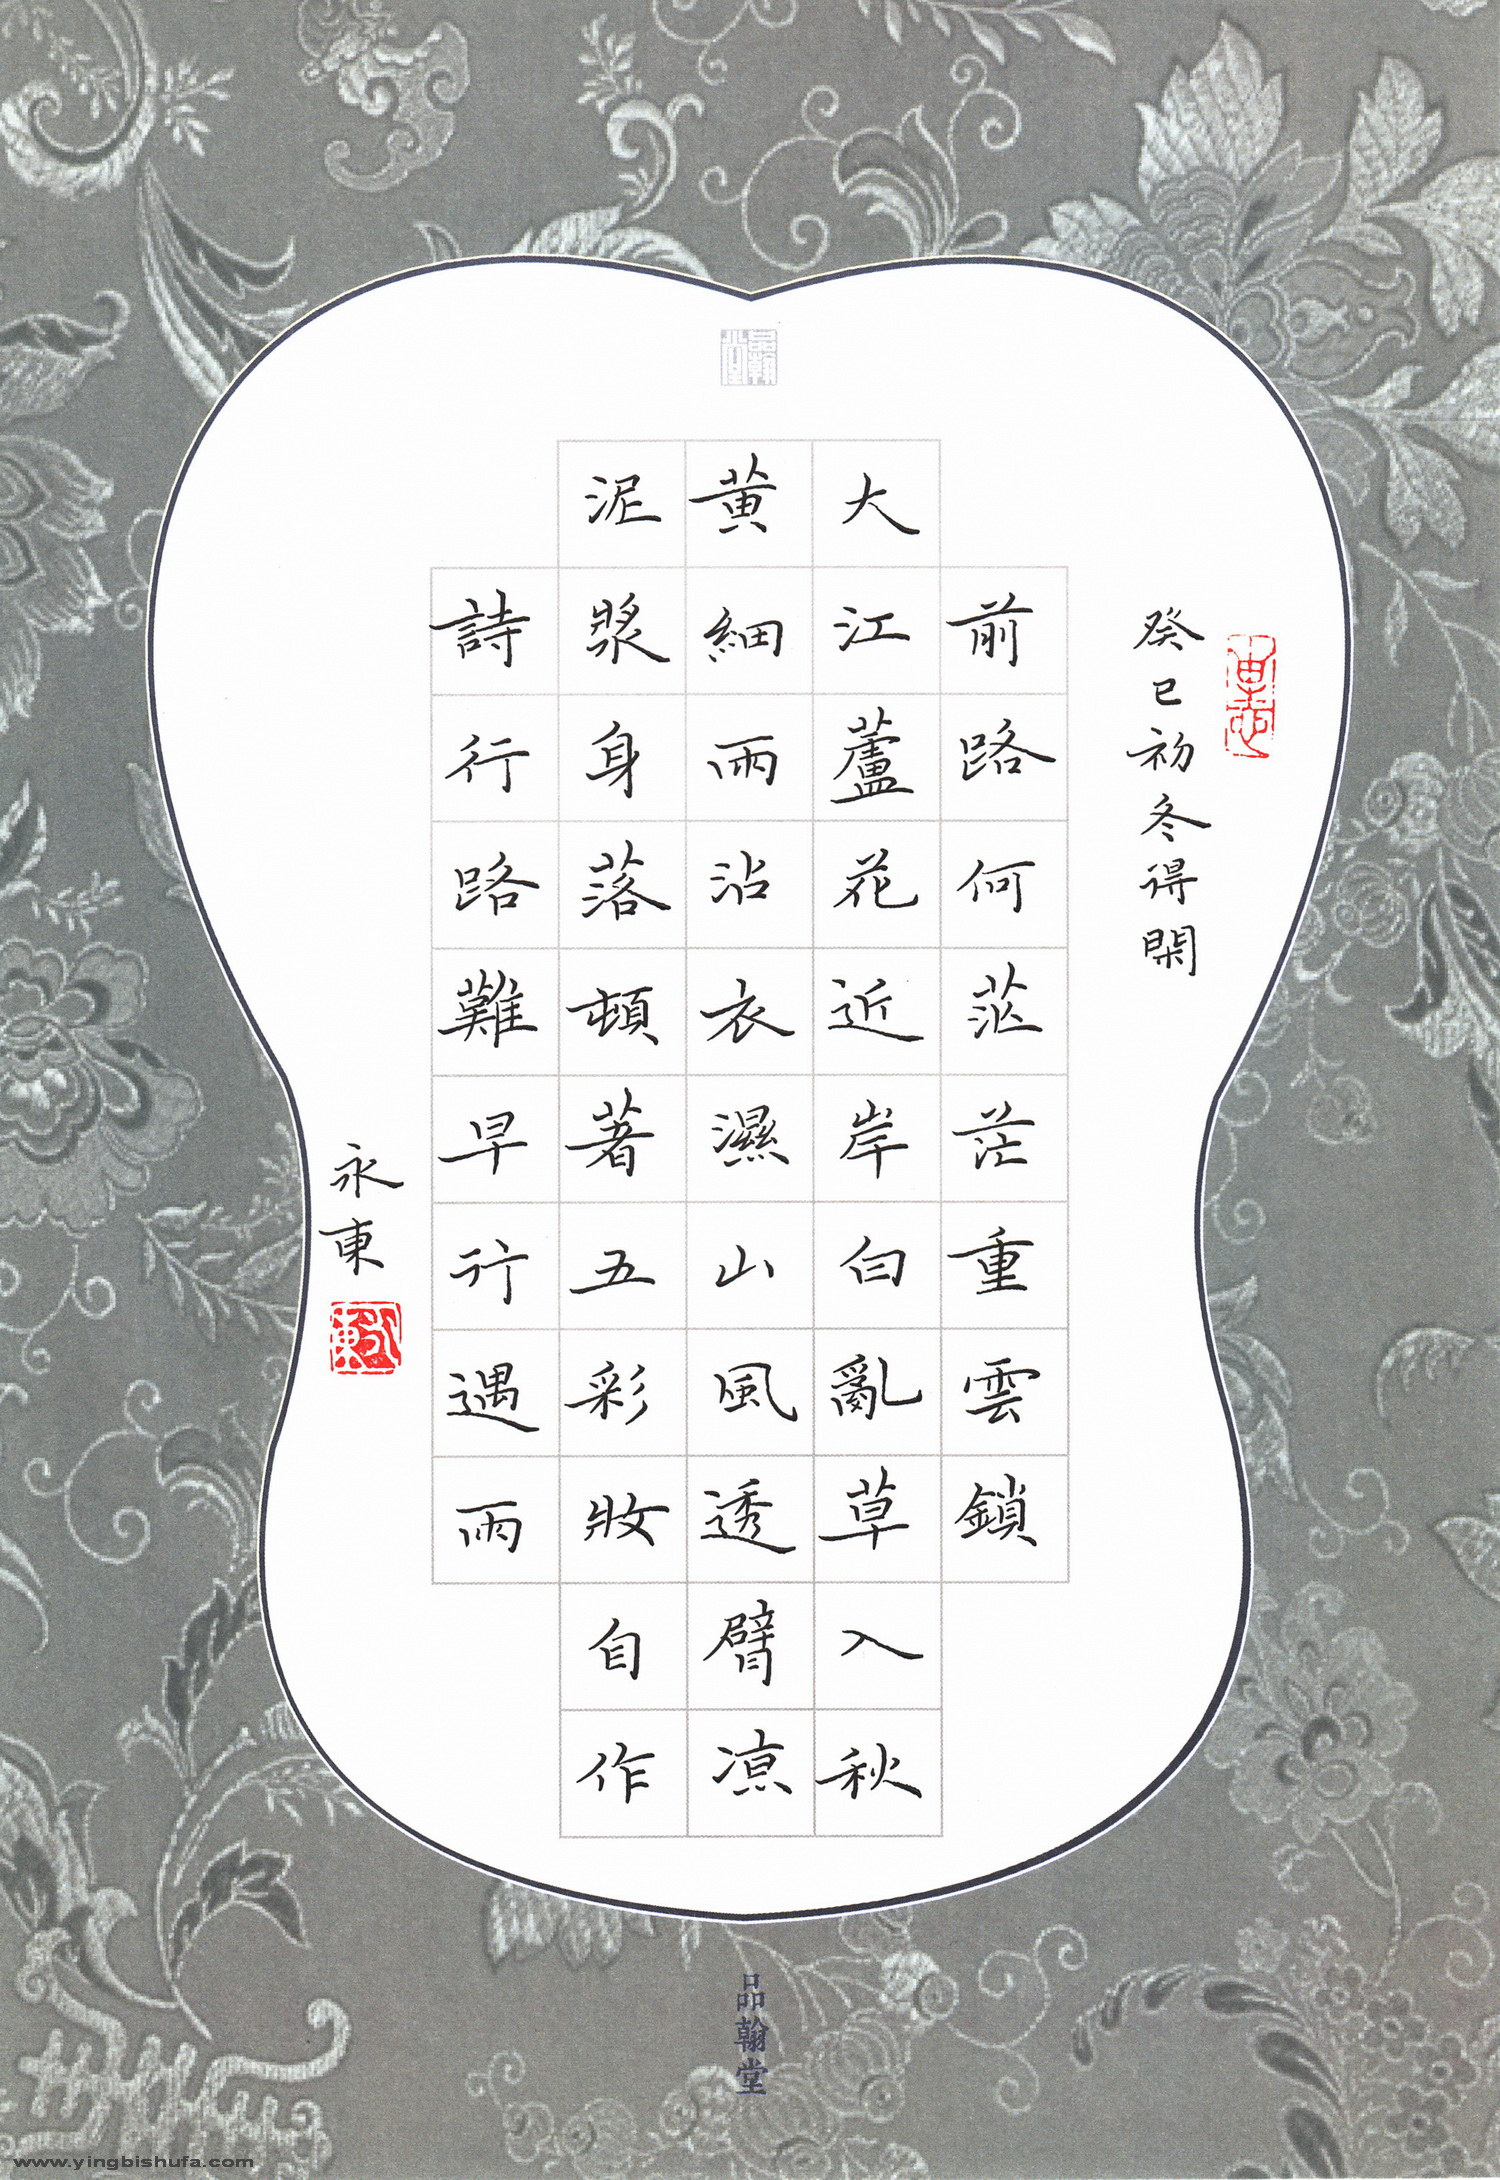 癸巳初冬得閑
前路何茫茫重雲鎖
大江蘆花近岸白亂草入秋
黄細雨沾衣濕山風透臂凉
泥漿身落頓著五彩妝自作
詩行路難早行遇雨
永東
品翰堂
品翰堂
www.yingbishufa.com